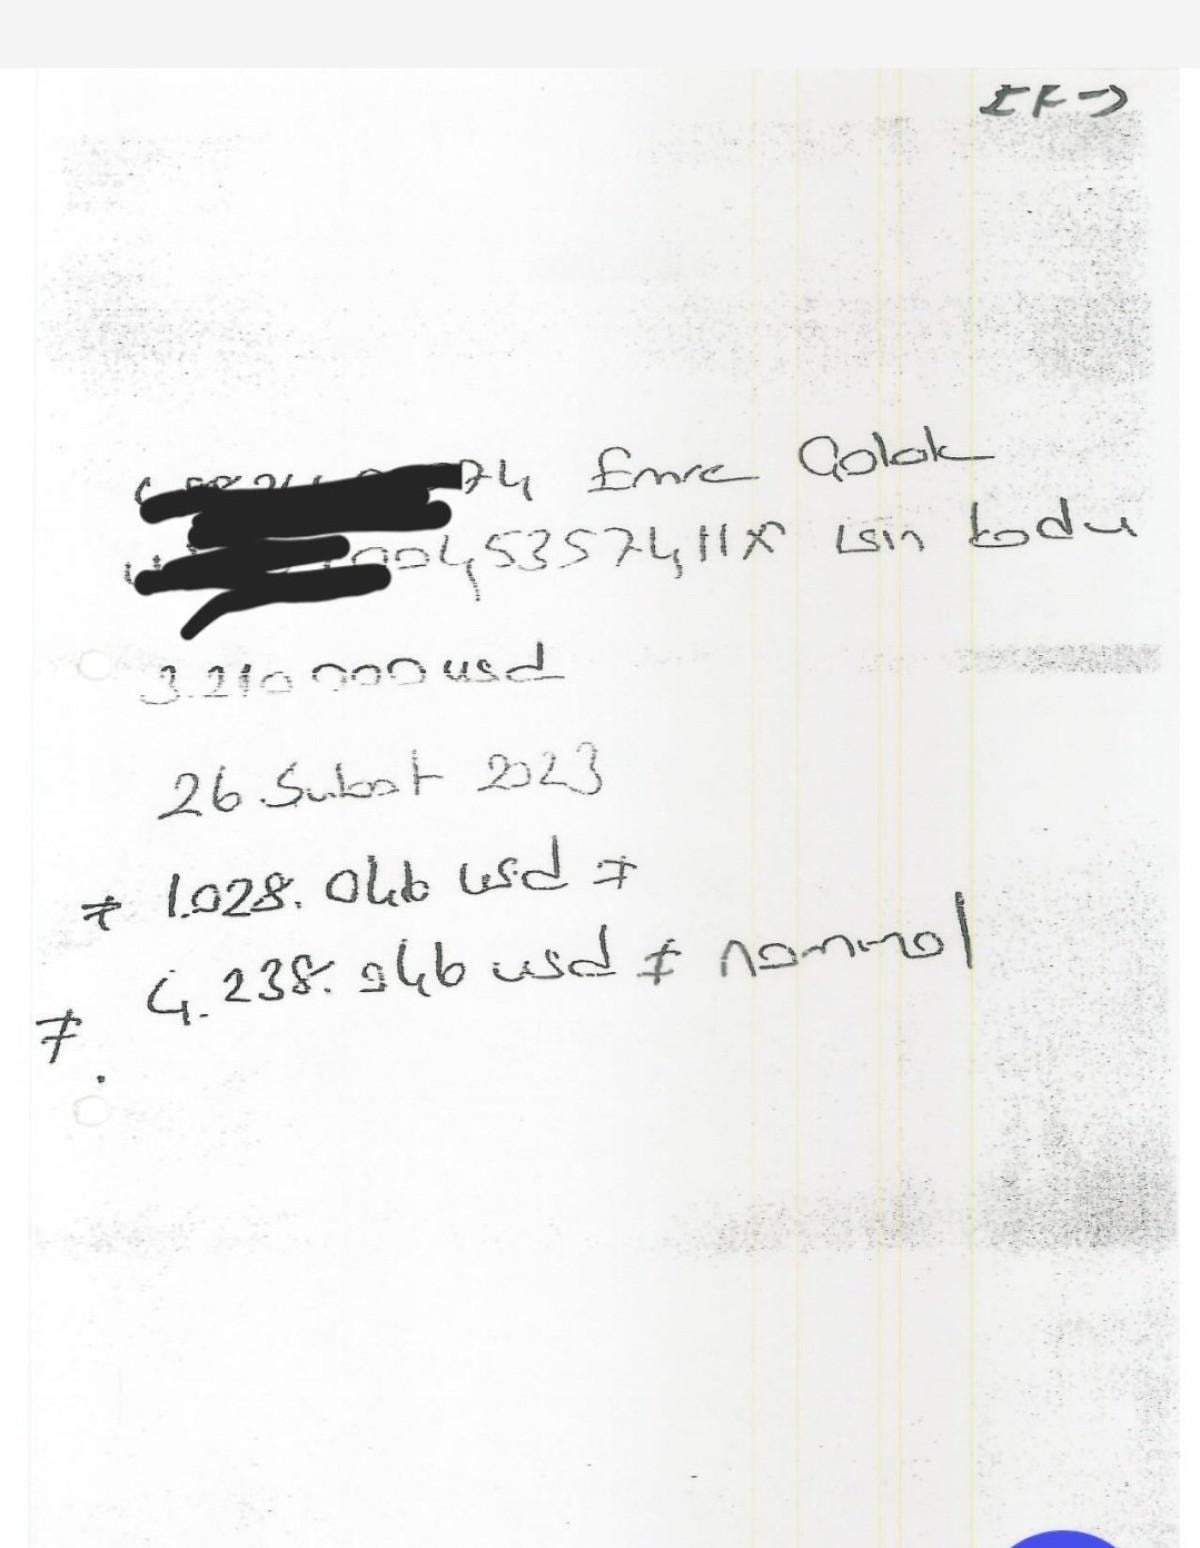 EK->
74 Emre Çolak
0045357411X isin kodu
3.210 000 usd
26 Subat 2023
≠ 1.028.046 usd ≠
≠ 4.238.046 usd ≠ nominal